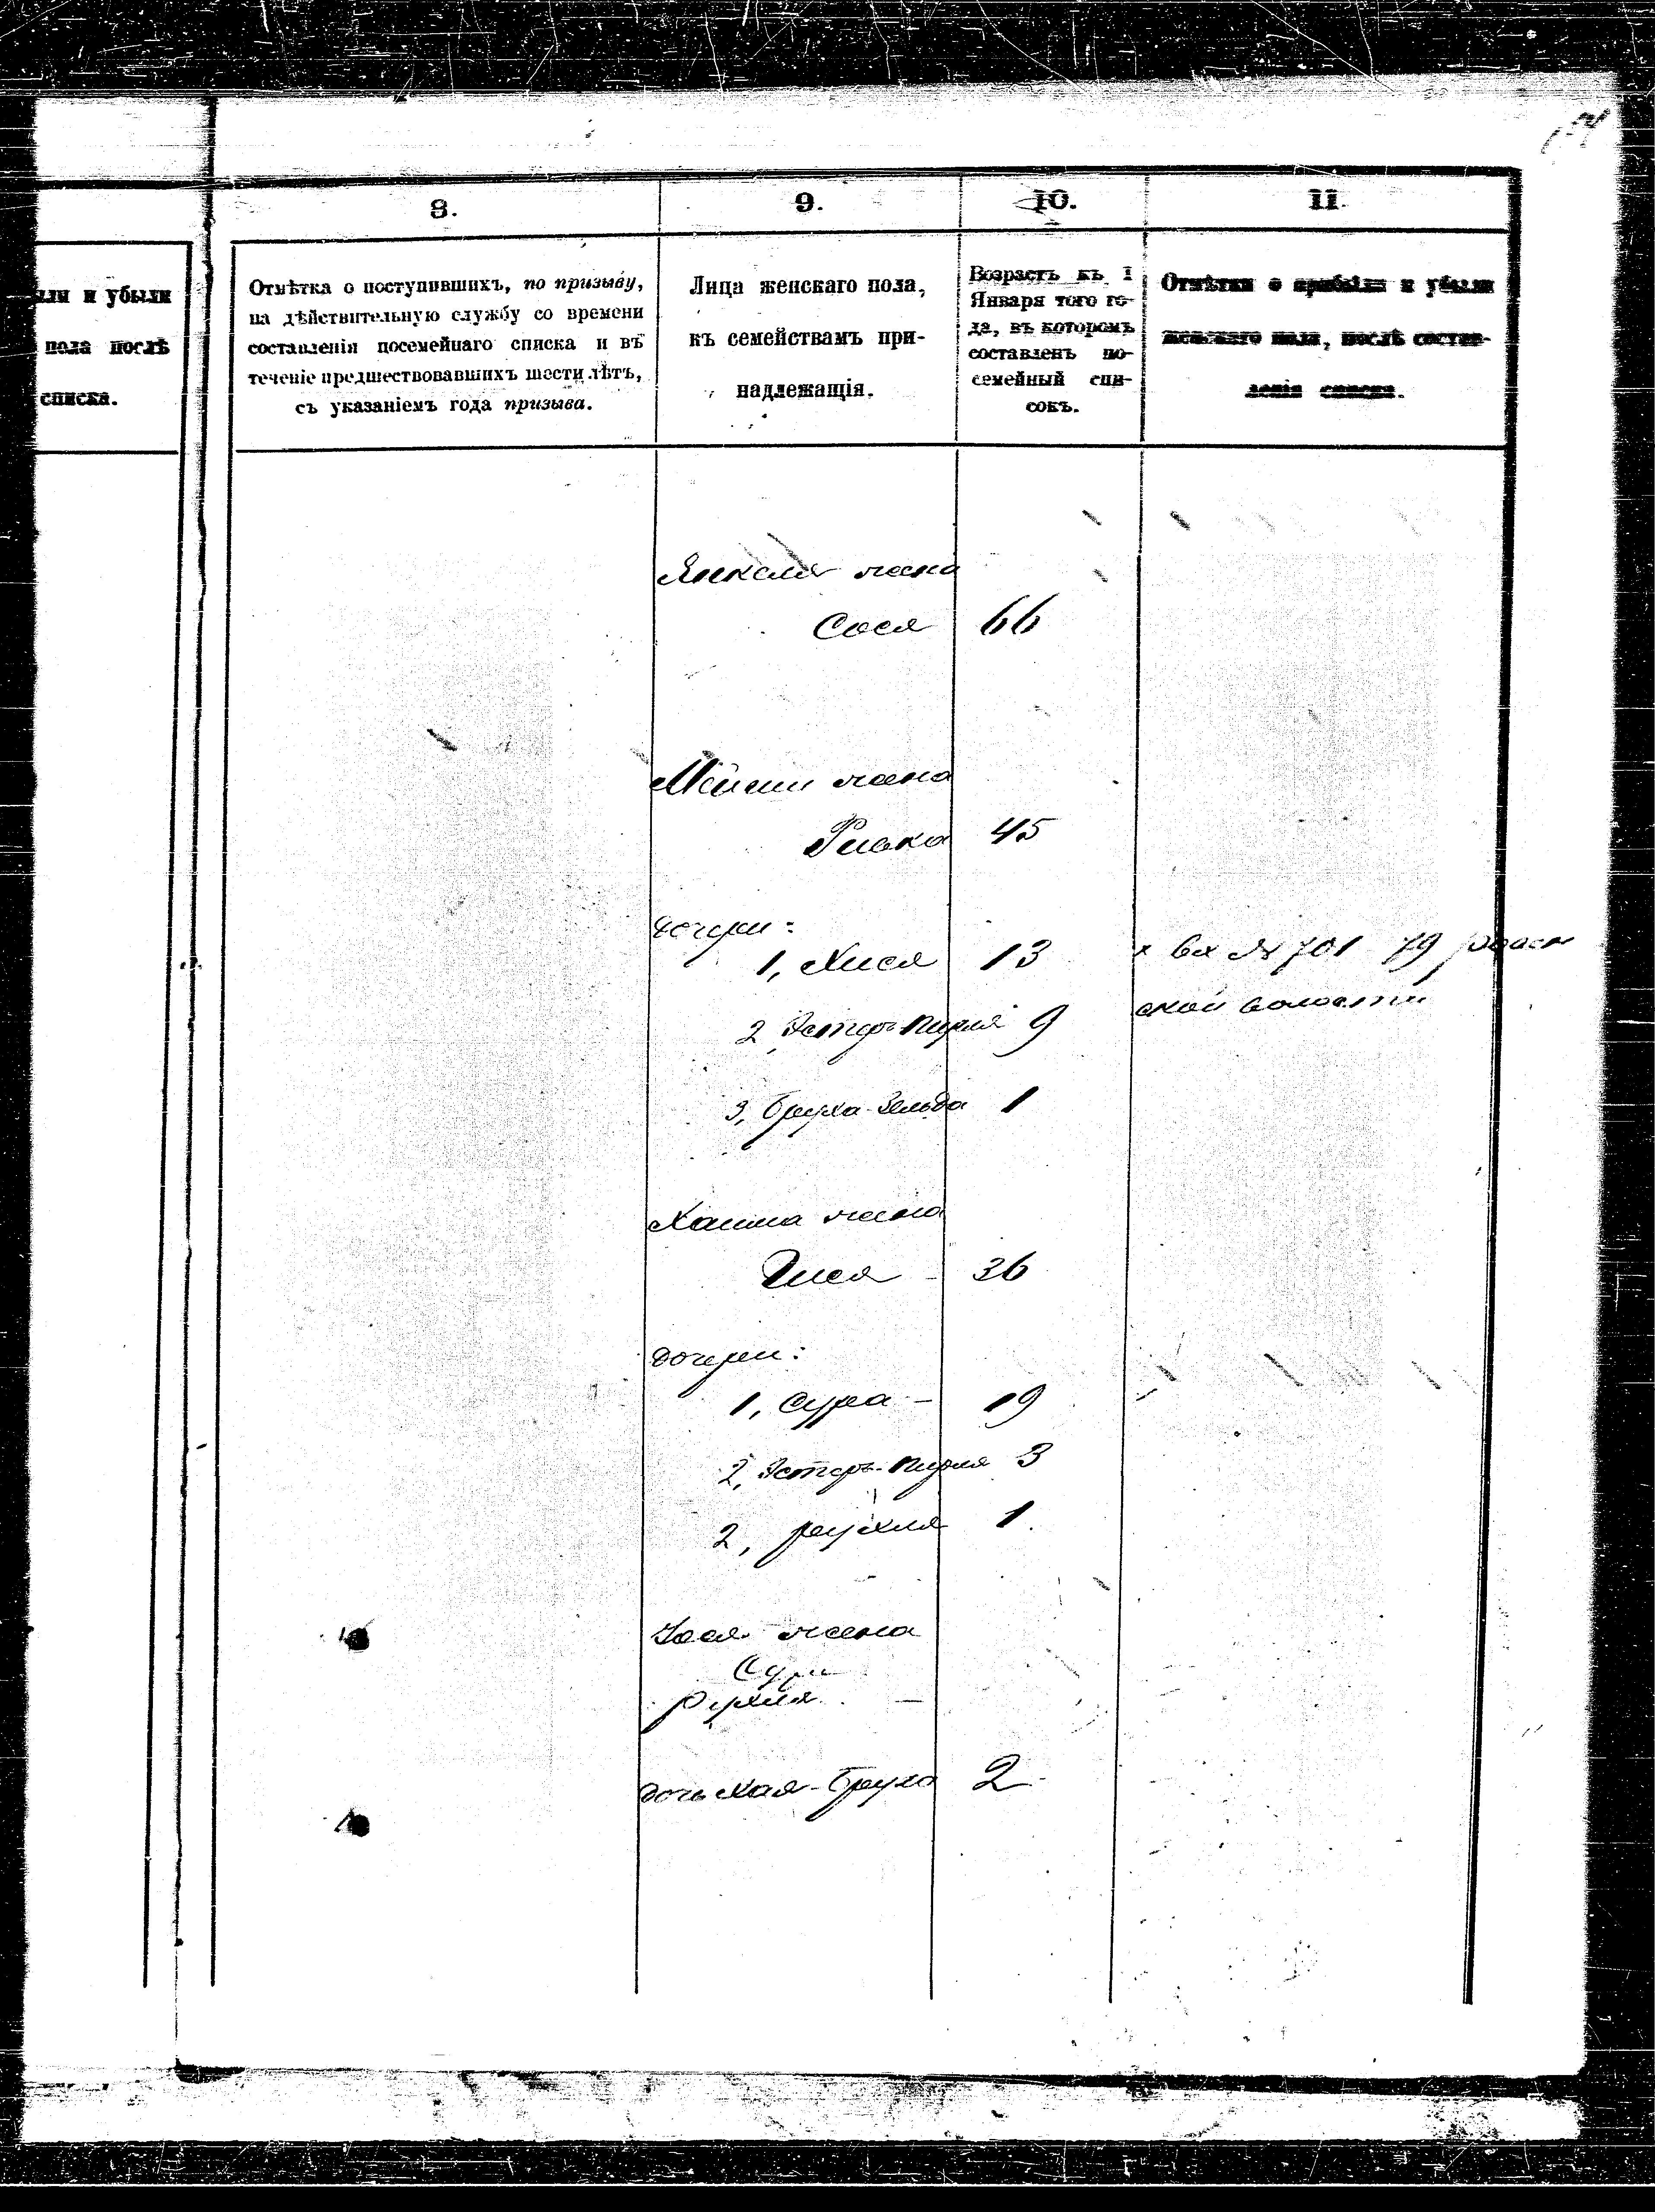 8.
9.
10.
11.
ыли и убыли
пола послѣ
списка.
Отмѣтка о поступившихъ, по призыву,
на дѣйствительную службу со времени
составленія посемейнаго списка и въ
теченіе предшествовавшихъ шести лѣтъ,
съ указаніемъ года призыва.
Лица женскаго пола,
къ семействамъ при-
надлежащія.
Возрастъ къ 1
Января того го-
да, въ которомъ
составленъ по-
семейный спи-
сокъ.
Отмѣтки о прибыли и убыли
женскаго пола, послѣ состав-
ленія списка.
Янкеля жена
Сося 66
Мейши жена
Ривка 45
дочери:
1, Хися 13
2, Эстеръ-Пирля 9
3, Бруха-Зельда 1
х вх № 701 79
ской волости
Хаима жена
Гися - 36
дочери:
1, Сура - 19
2, Эстеръ-Пирля 3
2, Рухля 1
жена
Рухля -
дочь Хая-Бруха 2